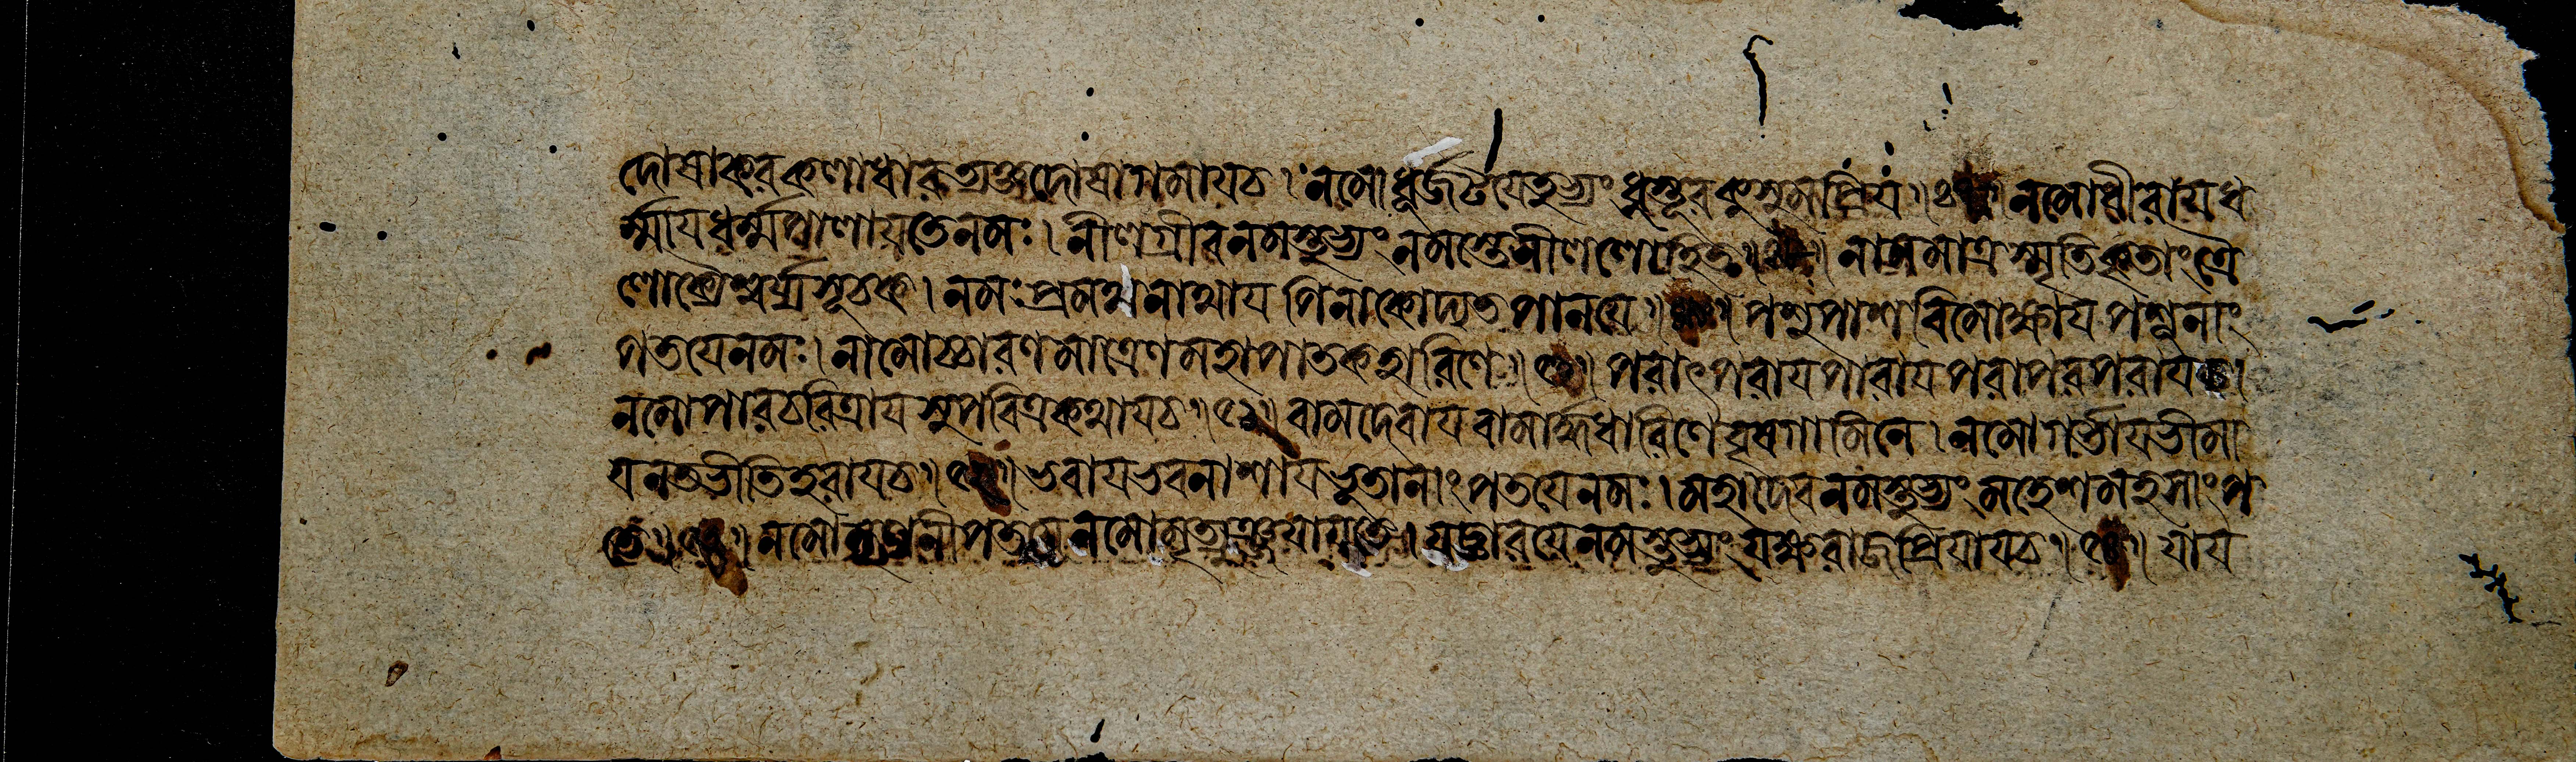 দোষাকরকলাধারত্যক্তদোষাগমায়চ । নমোধূর্জটয়েতুভ্যং ধুস্তূরকুসুমপ্রিয় ॥ নমোধীরায়ধ
র্ম্মায়ধর্ম্মপালায়তেনমঃ । নীলগ্রীবনমস্তুভ্যং নমস্তেনীললোহিত ॥ নামমাত্রস্মৃতিকৃতাং ত্রৈ
লোক্যৈশ্বর্য্যপূরক । নমঃ প্রমথনাথায় পিনাকোদ্যতপানয়ে ॥ পশুপাশবিমোক্ষায় পশূনাং
পতয়েনমঃ । নামোচ্চারণমাত্রেণমহাপাতকহারিণে ॥ পরাৎপরায়পারায়পরাপরপরায়চ ।
নমোপারচরিত্রায়সুপবিত্রকথায়চ ॥ বামদেবায়বামার্দ্ধধারিণেবৃষগামিনে । নমোগর্ভায়ভীমা
য়নতভীতিহরায়চ ॥ ভবায়ভবনাশায়ভুতানাং পতয়েনমঃ । মহাদেবনমস্তুভ্যং মহেশমহসাং প
তে ॥ নমোমৃডানীপতয়েনমোমৃত্যুঞ্জয়ায়তে । যজ্ঞারয়েনমস্তুভ্যং যক্ষরাজপ্রিয়ায়চ ॥ যায